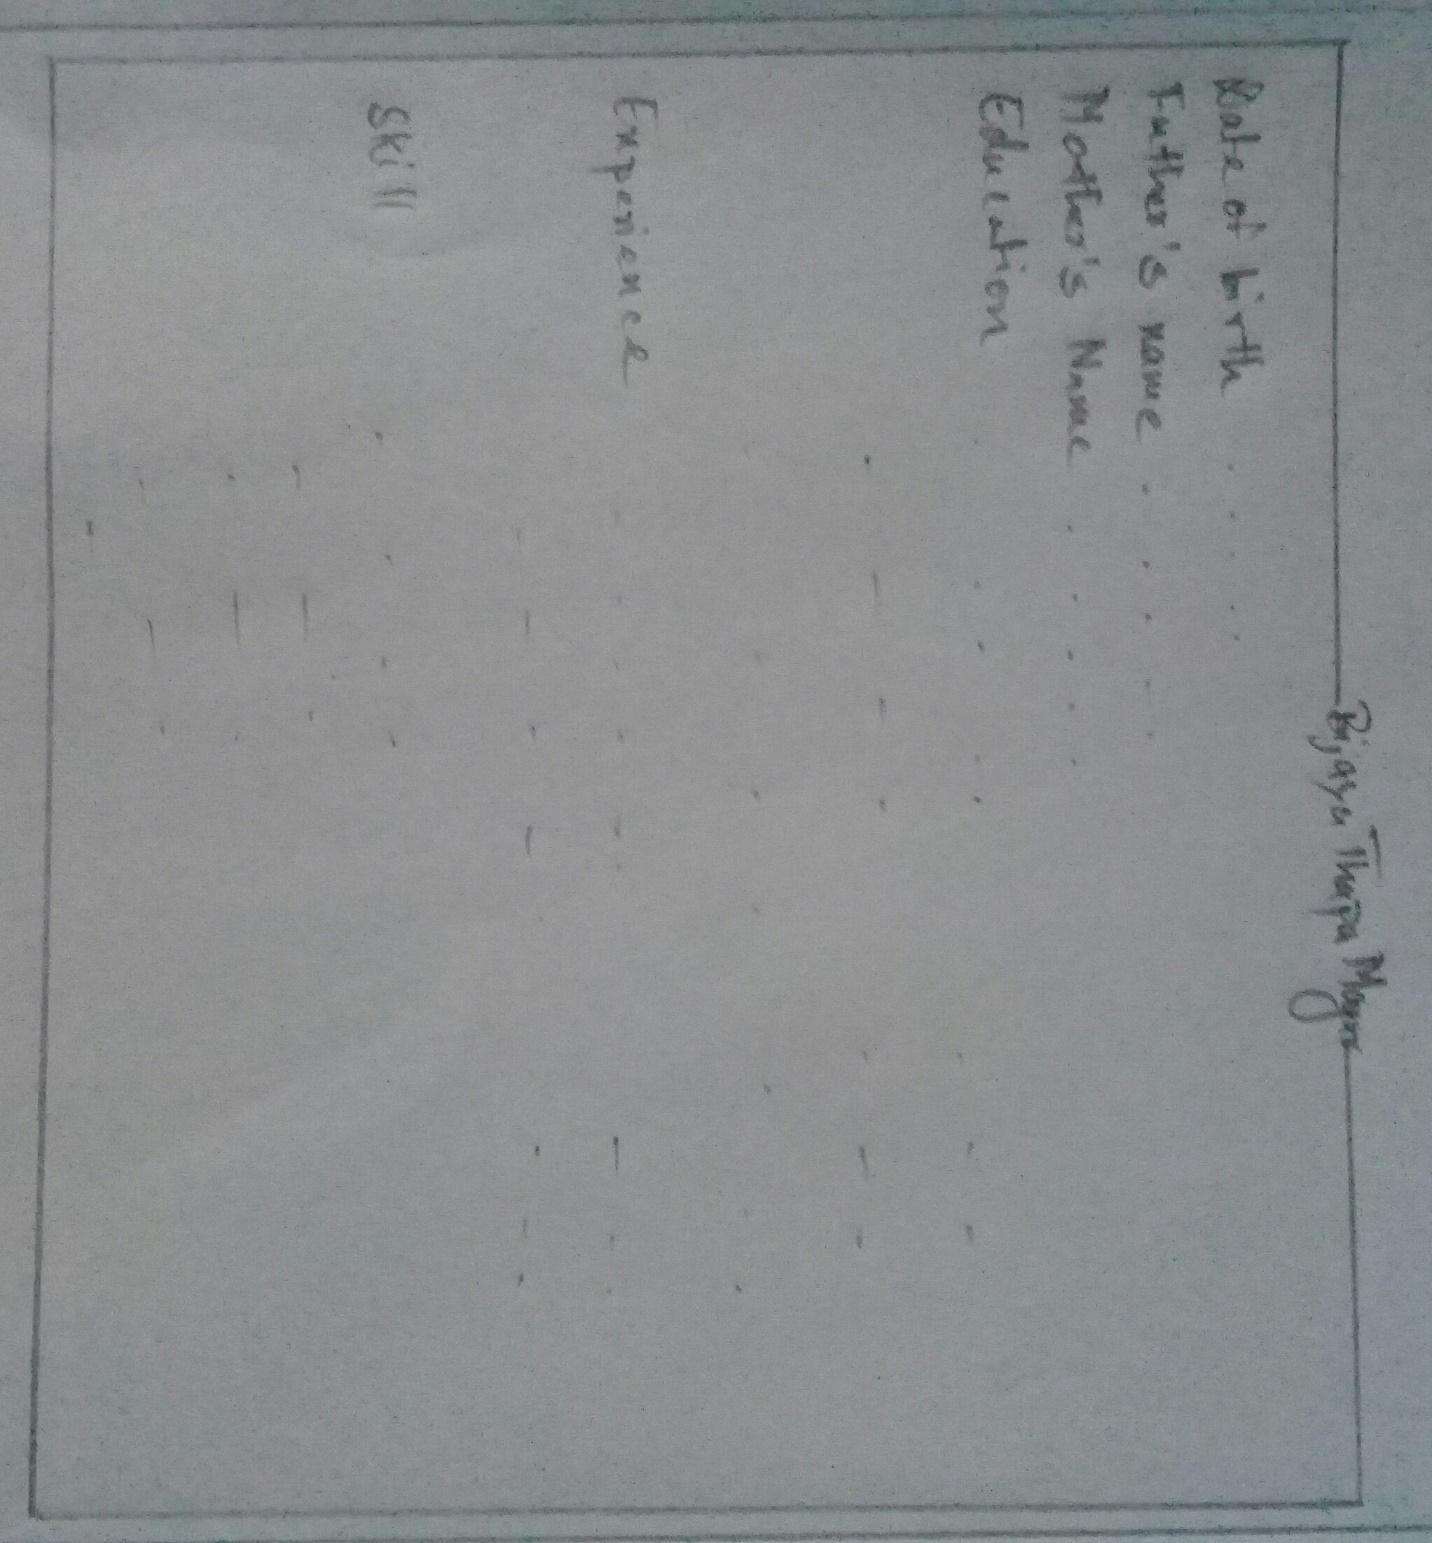 Bijaya Thapa Magar
Date of birth
Father's name
Mother's Name
Education
Experience
Skill